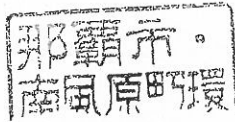 那覇市・
南風原町環